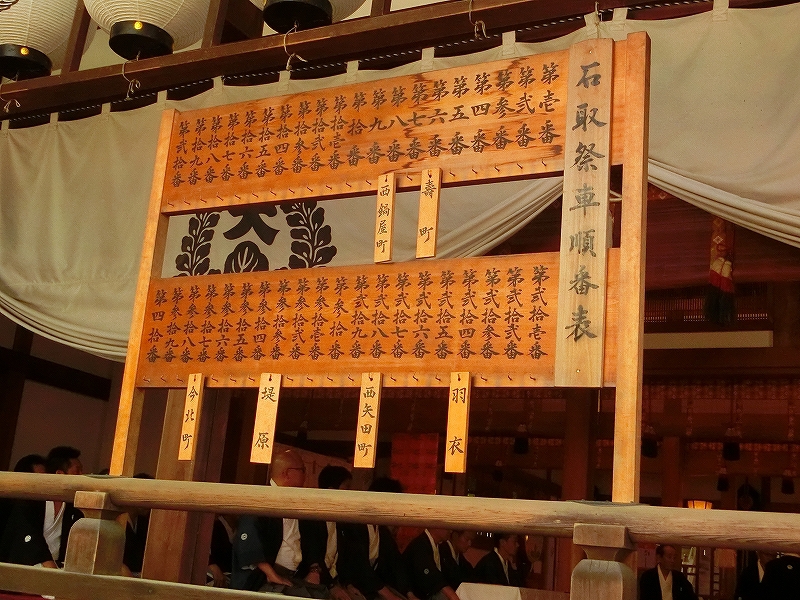 石取祭車順番表
第壱番
第弐番
第参番
第四番
第五番
第六番
第七番
第八番
第九番
第拾番
第拾壱番
第拾弐番
第拾参番
第拾四番
第拾五番
第拾六番
第拾七番
第拾八番
第拾九番
第弐拾番
壽町
西鍋屋町
第弐拾壱番
第弐拾弐番
第弐拾参番
第弐拾四番
第弐拾五番
第弐拾六番
第弐拾七番
第弐拾八番
第弐拾九番
第参拾番
第参拾壱番
第参拾弐番
第参拾参番
第参拾四番
第参拾五番
第参拾六番
第参拾七番
第参拾八番
第参拾九番
第四拾番
羽衣
西矢田町
堤原
今北町